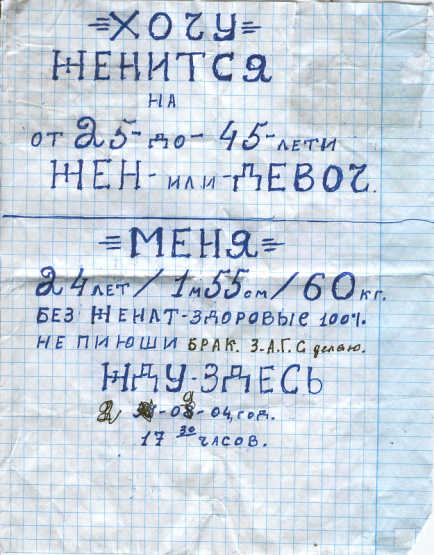 =ХОЧУ=
ЖЕНИТСЯ
НА
ОТ 25-ДО-45-ЛЕТИ
ЖЕН-ИЛИ-ДЕВОЧ.
=МЕНЯ=
24 ЛЕТ/1м55см/60кг.
БЕЗ ЖЕНАТ-ЗДОРОВЫЕ 100%.
НЕ ПИЮШИ БРАК. З.А.Г.С делаю.
ЖДУ-ЗДЕСЬ
-04, год.
17 30 ЧАСОВ.